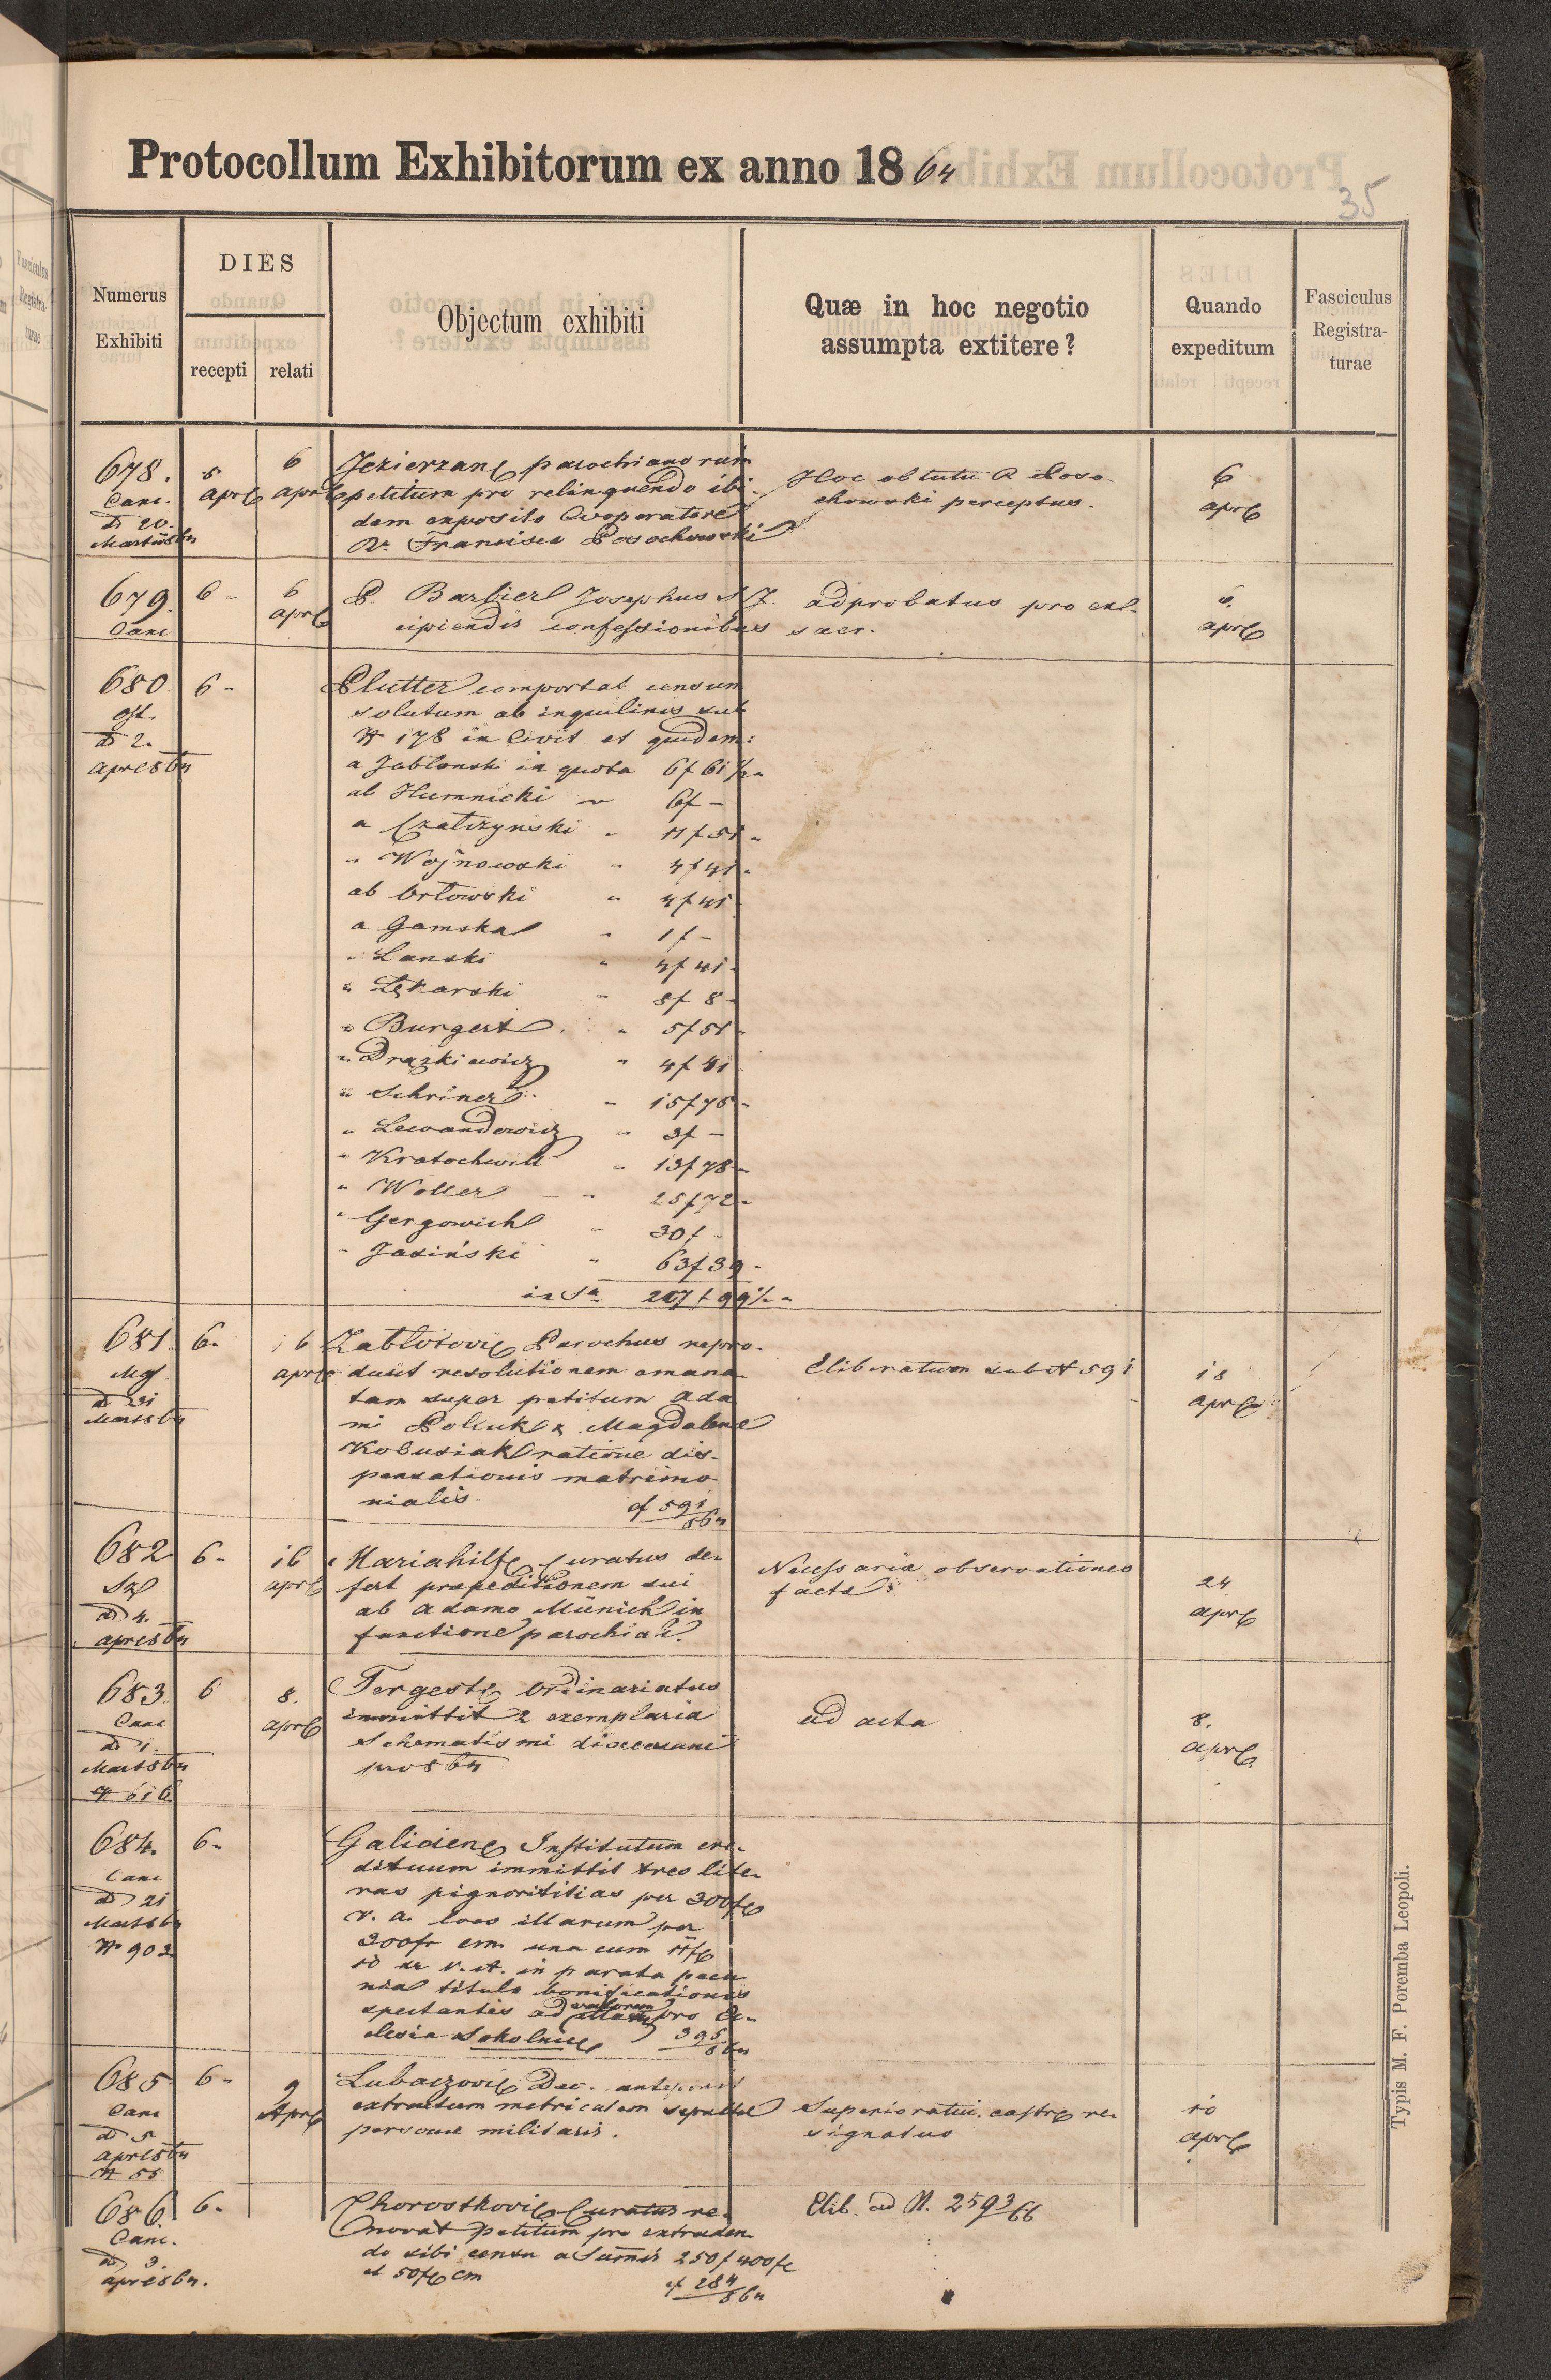 Protocollum Exhibitorum ex anno 1864
35
Numerus Exhibiti
DIES
recepti
relati
Objectum exhibiti
Quæ in hoc negotio assumpta extitere?
Quando expeditum
Fasciculus Registra-turae
678.
Canc.
d 20.
Martii 864
5 apr
6 apr
Jezierzan parochianorum
petitum pro relinquendo ibi-
dem exposito Cooperatore
R. Francisco Posochowski
Hoc obtutu R Poso-
chowski perceptus.
6
apr
679.
Canc
6
6
apr
P. Barbier Josephus S J.
cipiendis confessionibus
adprobatus pro exl.
sacr.
6.
apr
680
Off.
d 2.
apr 864
6
Plutter comportat censum
solutum ab inquilinis sub
N 178 in Civit. et quidem:
a Jabłonski in quota 6f 61½
ab Humnicki 6f –
a Czatczynski 11f 51
" Wojnowski " 4f 41
ab Orłowski " 4f 41
a Gamska " 1f –
" Lanski " 4f 41
" Lękarski 8f 8
" Burgert " 5f 51
" Drązkiewicz " 4f 41
" Schriner 15f 75
" Lewandowicz 3f –
" Kratochwill 13f 78
" Woller " 25f 72
" Gergowich 30f –
" Jasiński 63f 39
in Sa 207f 99½
681
d 31
Mart 864
6
16
apr
Zabłotovi Parochus repro-
ducit resolutionem emana-
tam super petitum Ada
mi Polluk & Magdalene
Kobusiak ratione dis-
pensationis matrimo
nialis.
cf 591/864
Elibreatum sub N 591
18
apr
682
Sz
d 4.
apr 864
6
16
apr
Mariahilf Curatus de-
fert praepeditionem sui
ab Adamo Münich in
functione parochiali.
Necessariae observationes
factae
24
apr
683.
Canc
d 1.
Mart 864
N 616
6
8.
apr
Tergest Ordinariatus
immittit 2 exemplaria
Schematismi dioecesani
pro 864
ad acta
8.
apr
684.
Canc
d 21
Mart 864
N 902
6
Galicien Institutum cre-
dituum immittit tres lite-
ras pignorititias per 300f
v. a. loco illarum per
300fr cm una cum
10 xr v. A. in parata pecu
nia titulo bonificationis
spectantes ad pro Ec-
clesia Sokolnic 395/864
685
Canc
d 5
apr 864
N 55
6
9
Apr
Lubaczovi Dec.
extractum metricalem sepultae
personae militaris.
Superioratui castr re-
signatus
10
apr
686
Canc.
d 3.
apr 864.
6
Chorostkovi Curatus re-
novat petitum pro extraden-
do sibi censu a Summis 250f 400f
et 50f cm
cf 284/864
Elib. ad N. 2593/66
Typis M. F. Poremba Leopoli.